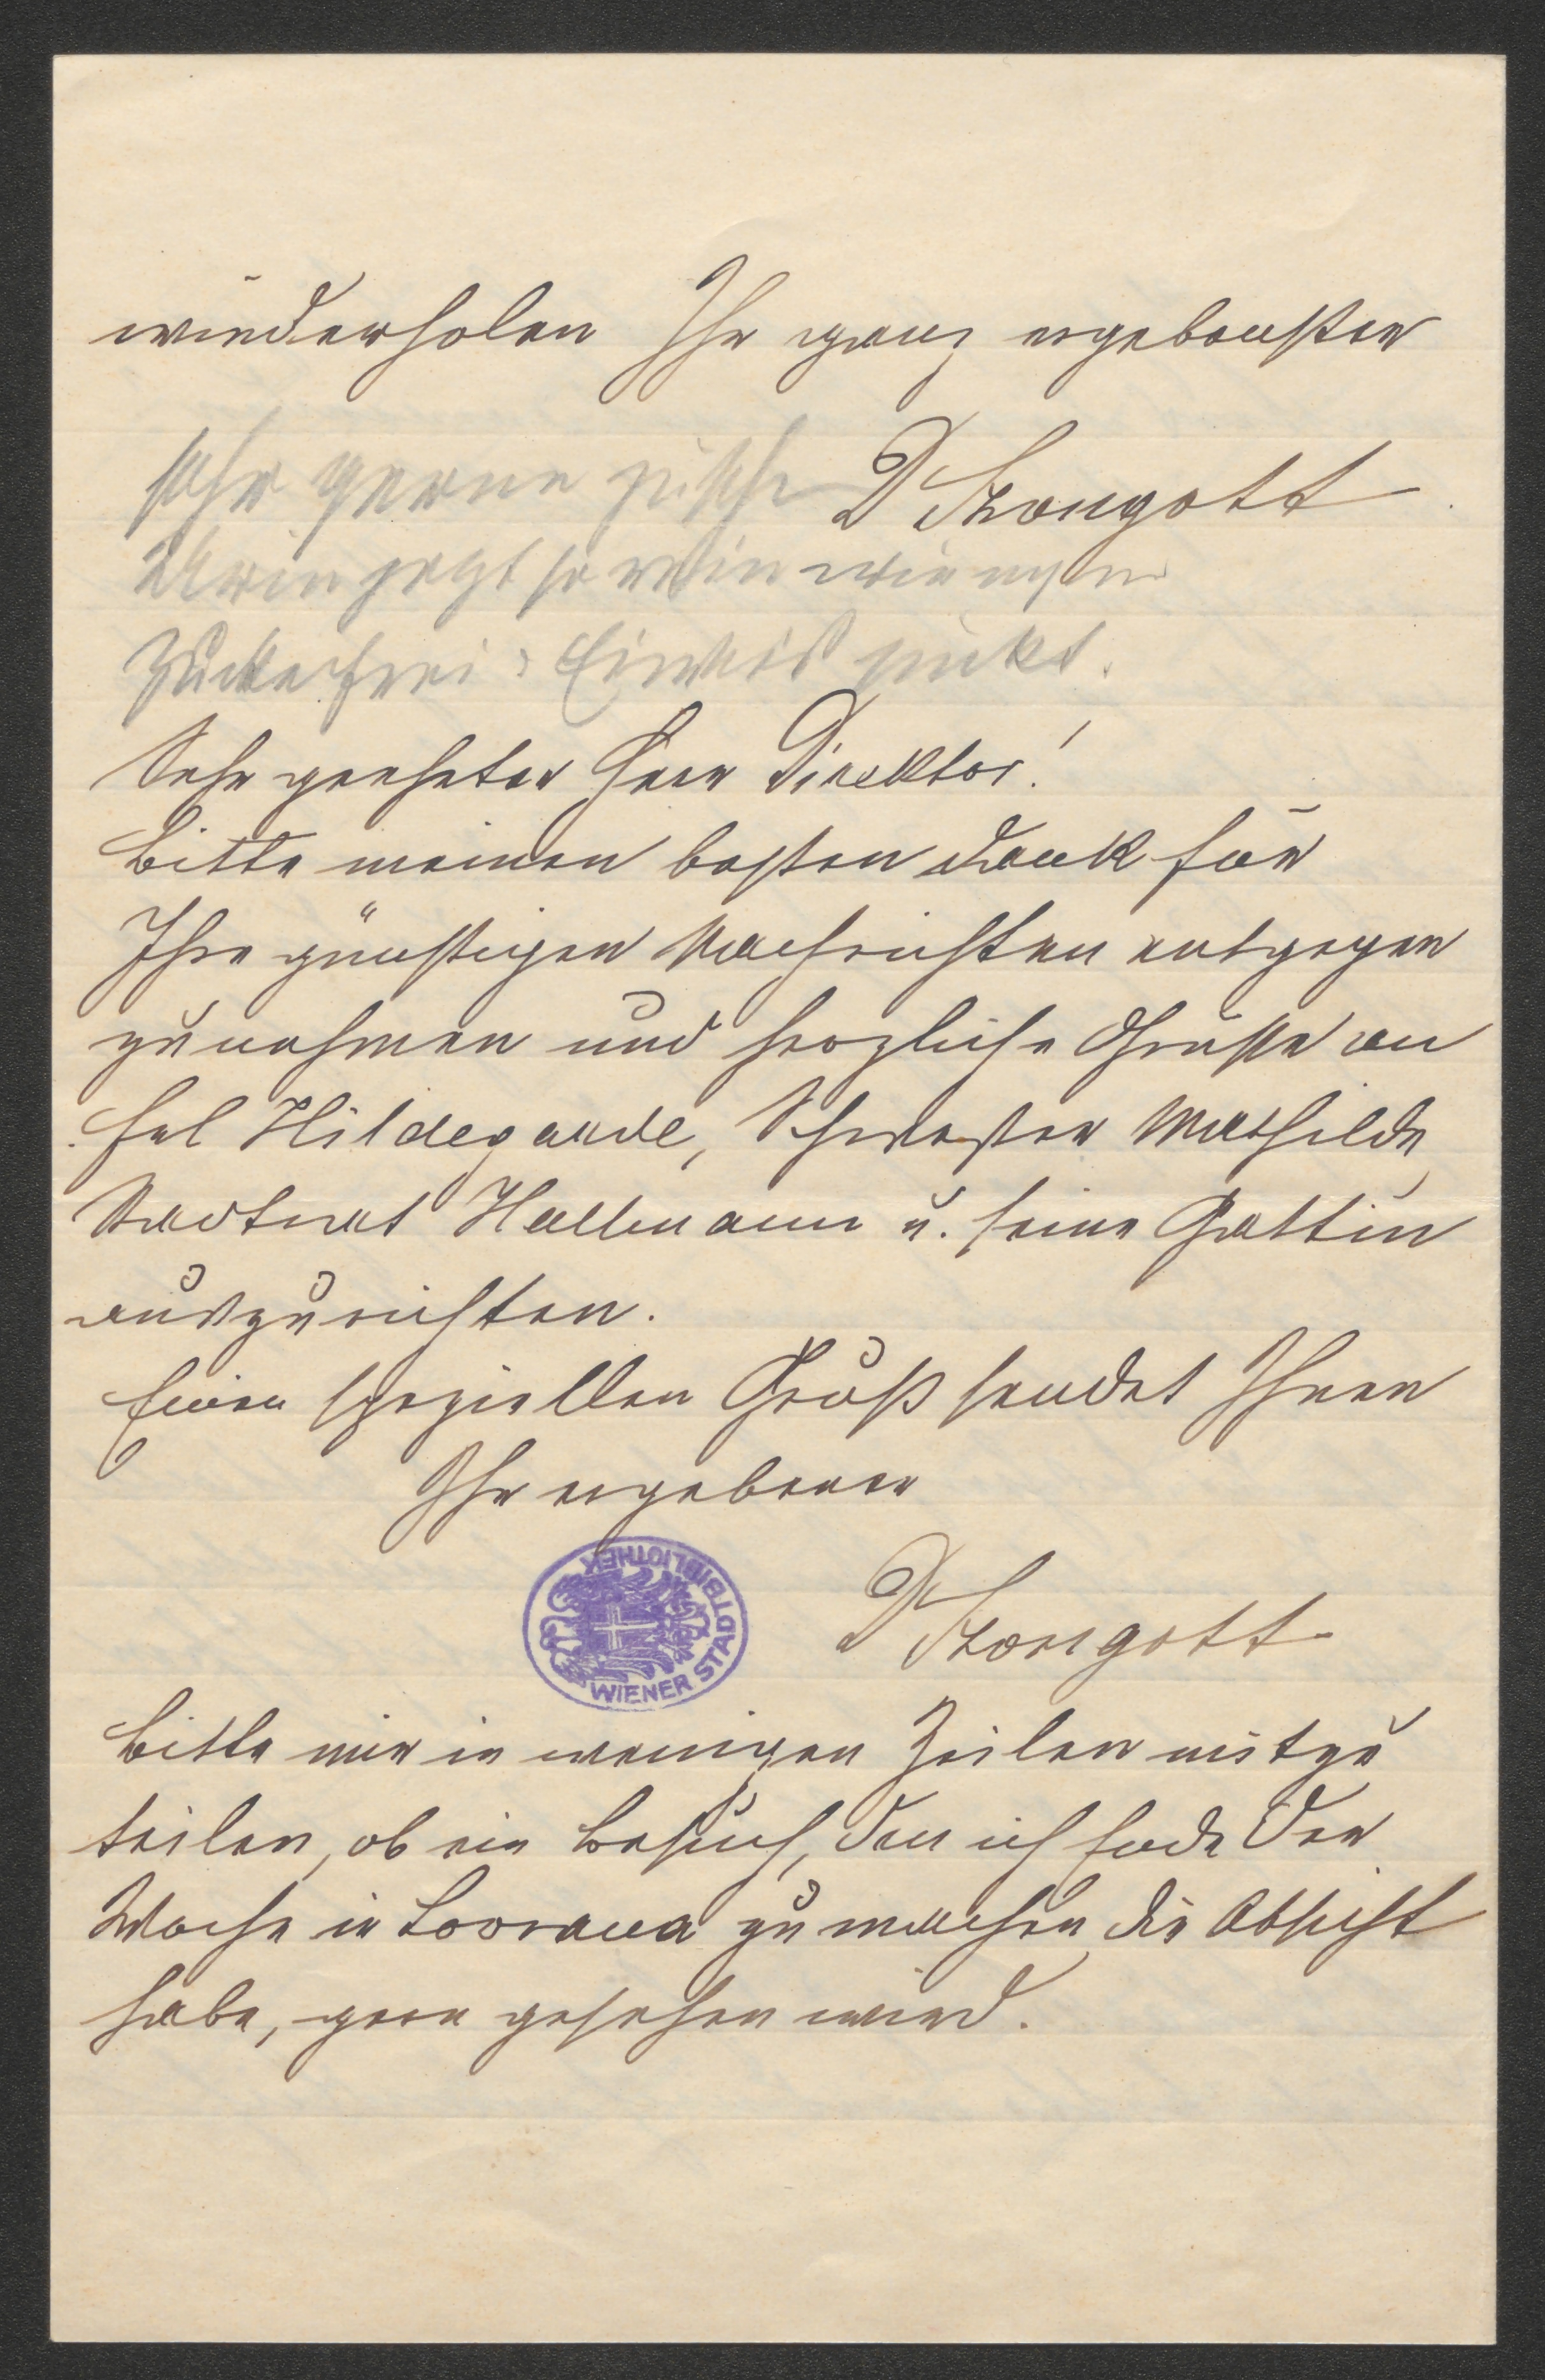 wiederholen Ihr ganz ergebenster
sehr gerne
D Skongott
Urin jetzt so rein wie
Zuckerfrei: Eiweis nicht.
Sehr geehrter Herr Direktor!
Bitte meinen besten Dank für
Ihre günstigen Nachrichten entgegen
zu nehmen und herzliche Grüße an
Frl Hildegarde, Schwester Mathilde
Stadtrat Hallmann u. seine Gattin
auszurichten.
Einen speziellen Gruß sendet Ihnen
Ihr ergebener
WIENER STADTBIBLIOTHEK
D Skongott
Bitte mir in wenigen Zeilen mitzu
teilen, ob ein Besuch, den ich Ende der
Woche in Lovrana zu machen die Absicht
habe, gern gesehen wird.